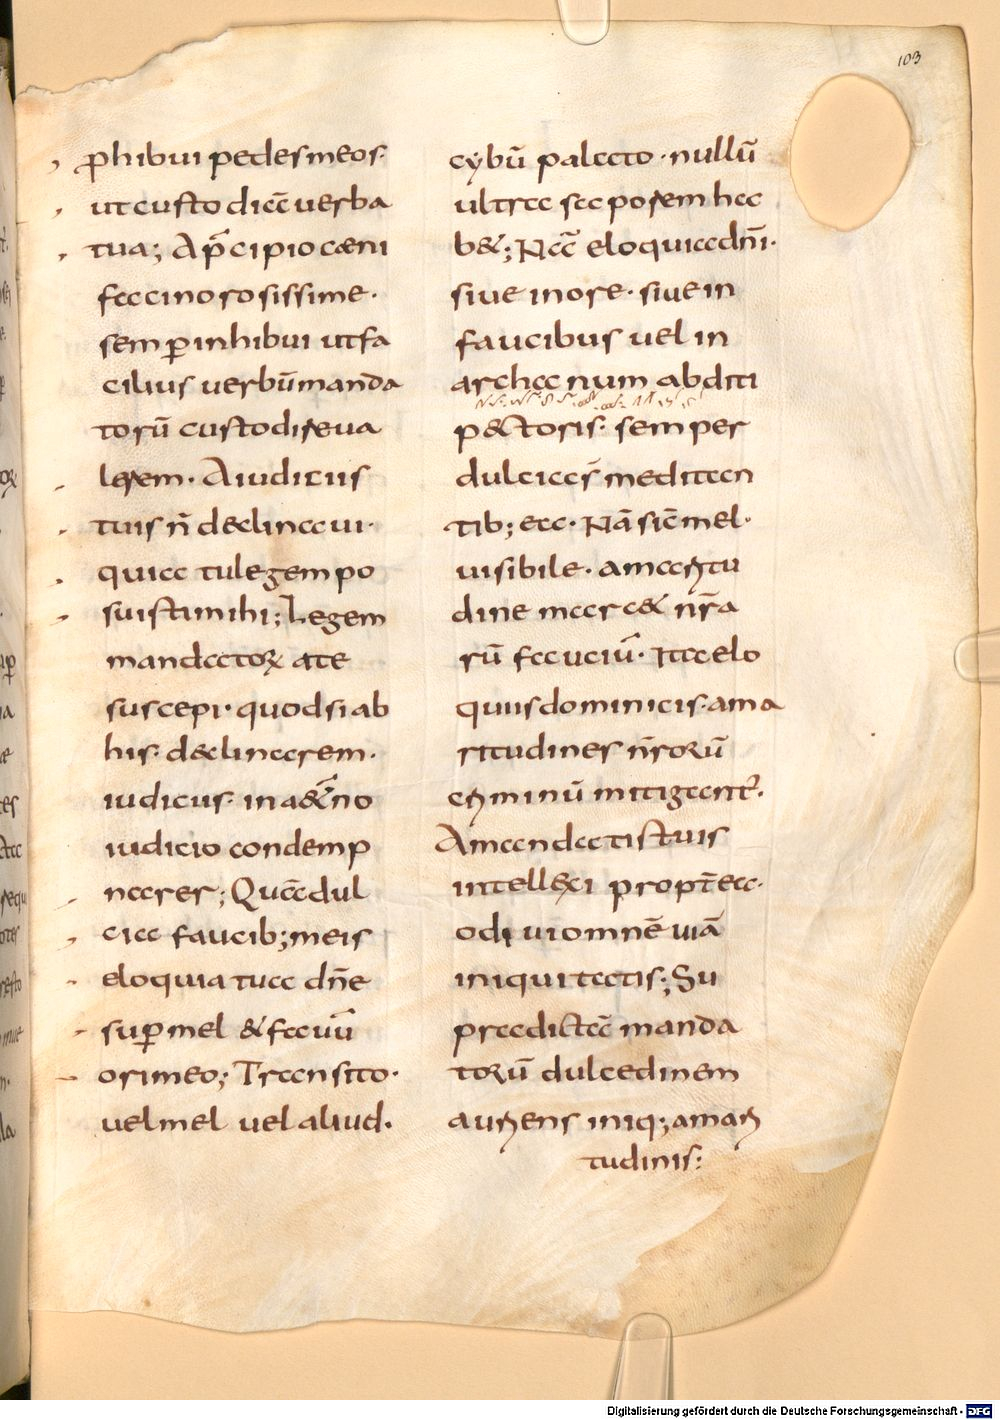 103
ꝓhibui pedes meos·
ut custodiā uerba
tua; A pͥncipio cæni
faccinorosissime·
semꝑ inhibui ut fa
cilius uerbū manda
torū custodirem a
legem· A iudiciis
tuis n̄ declinaui·
quia tu legem po
suisti mihi; Legem
mandatoꝝ a te
suscepi· quod si ab
his declinarem·
iudiciis in a&erno
iudicio condemp
narer; Quā dul
cia faucib; meis
eloquia tua dn̄e
suꝑ mel & fauū
ori meo; Transito·
uel mel uel aliud·
cybū palato· nullū
ultra saporem ha
b&; Nā eloquia dn̄i·
siue in ore· siue in
faucibus uel in
archanum abditi
p&toris· semper
dulcia s̄ meditan
tib; ea· Nā sic̄ mel·
uisibile· amaritu
dine mare& nr̄a
rū fauciū· Ita elo
quiis dominicis· ama
ritudines nr̄orū
criminū mitigant᷑·
A mandatis tuis
intellexi propt̄ea·
odiui omnē uiā
iniquitatis; Su
pradictā manda
torū dulcedinem
auriens iniq; amari
tudinis·
Digitalisierung gefördert durch die Deutsche Forschungsgemeinschaft - DFG